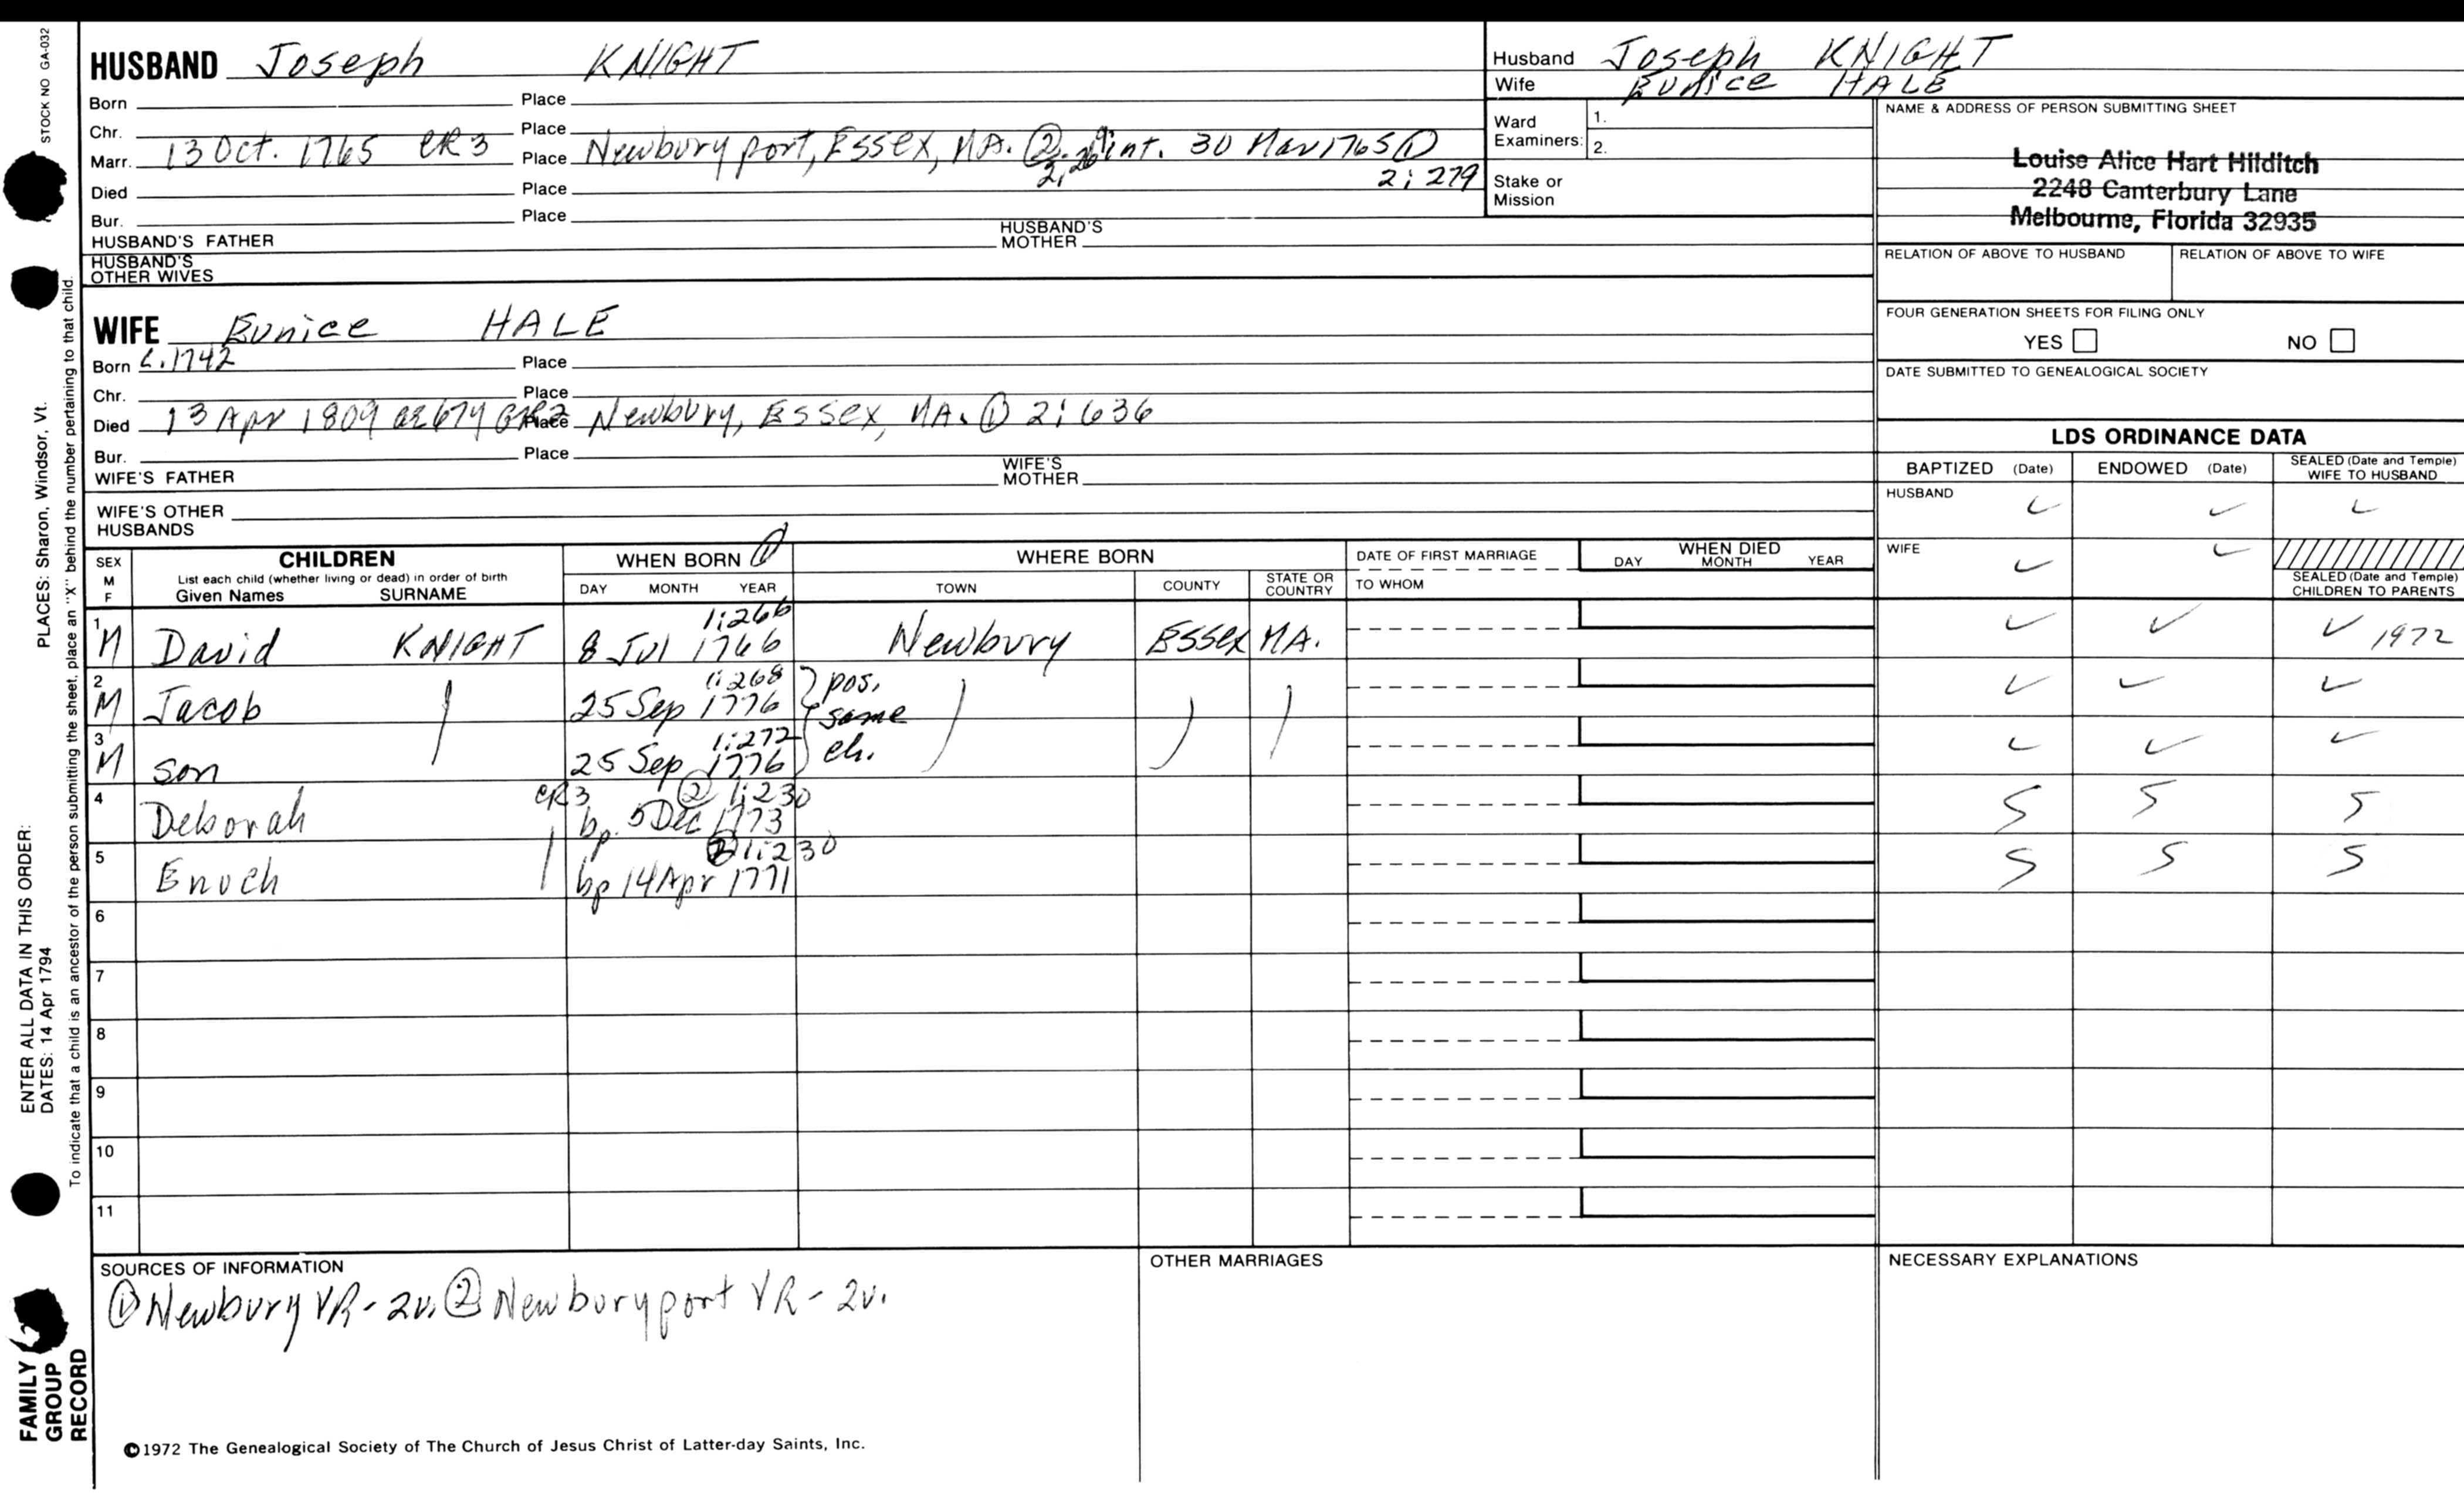 STOCK NO GA-032
PLACES: Sharon, Windsor, Vt.
ENTER ALL DATA IN THIS ORDER:
DATES: 14 Apr 1794
To indicate that a child is an ancestor of the person submitting the sheet, place an "X" behind the number pertaining to that child.
FAMILY
GROUP
RECORD
HUSBAND Joseph KNIGHT
Born Place
Chr. Place
Marr. 13 Oct. 1765 CR3 Place Newburyport, Essex, MA. ② int. 30 Mar 1765 ①
2:279
Died Place
Bur. Place
HUSBAND'S FATHER HUSBAND'S MOTHER
HUSBAND'S OTHER WIVES
WIFE Eunice HALE
Born c. 1742 Place
Chr. Place
Died 13 Apr 1809 ae 67y GR2 Place Newbury, Essex, MA. ① 2:636
Bur. Place
WIFE'S FATHER WIFE'S MOTHER
WIFE'S OTHER HUSBANDS
Husband Joseph KNIGHT
Wife Eunice HALE
Ward Examiners: 1.
2.
Stake or Mission
NAME & ADDRESS OF PERSON SUBMITTING SHEET
Louise Alice Hart Hilditch
2248 Canterbury Lane
Melbourne, Florida 32935
RELATION OF ABOVE TO HUSBAND RELATION OF ABOVE TO WIFE
FOUR GENERATION SHEETS FOR FILING ONLY
YES NO
DATE SUBMITTED TO GENEALOGICAL SOCIETY
LDS ORDINANCE DATA
BAPTIZED (Date) ENDOWED (Date) SEALED (Date and Temple) WIFE TO HUSBAND
HUSBAND ✓ ✓ ✓
WIFE ✓ ✓
SEALED (Date and Temple) CHILDREN TO PARENTS
SEX M F
CHILDREN
List each child (whether living or dead) in order of birth
Given Names SURNAME
WHEN BORN ①
DAY MONTH YEAR
WHERE BORN
TOWN COUNTY STATE OR COUNTRY
DATE OF FIRST MARRIAGE
TO WHOM
WHEN DIED
DAY MONTH YEAR
1:266
1 M David KNIGHT 8 Jul 1766 Newbury Essex MA. ✓ ✓ ✓ 1972
1:268 pos.
2 M Jacob 25 Sep 1776 same ✓ ✓ ✓
1:272 ch.
3 M son 25 Sep 1776 ✓ ✓ ✓
CR3 ② 1:230
4 Deborah bp. 5 Dec 1773 S S S
② 1:230
5 Enoch bp 14 Apr 1771 S S S
6
7
8
9
10
11
SOURCES OF INFORMATION
① Newbury VR - 2v. ② Newburyport VR - 2v.
OTHER MARRIAGES
NECESSARY EXPLANATIONS
©1972 The Genealogical Society of The Church of Jesus Christ of Latter-day Saints, Inc.